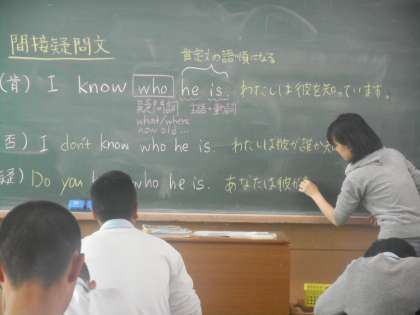 間接疑問文
肯定文の語順になる
(肯) I know who he is. わたしは彼を知っています。
疑問詞 主語+動詞
what/where
how old ...
否) I don't know who he is. わたしは彼が誰か知
疑) Do you who he is. あなたは彼が